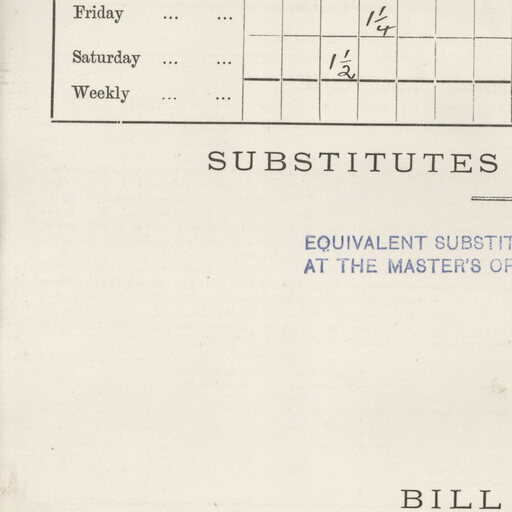 Friday ... ... 1 1/4
Saturday ... ... 1 1/2
Weekly ... ...
SUBSTITUTES
EQUIVALENT SUBSTIT
AT THE MASTER'S OP
BILL